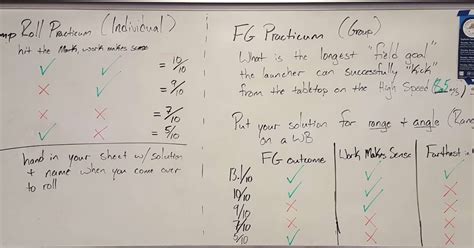 mp Roll Practicum (Individual)
hit the Mark, work makes sense
✓ ✓ = 10/10
✗ ✓ = 9/10
✗ ✗ = 7/10
✓ ✗ = 5/10
hand in your sheet w/ solution
+ name when you come over
to roll
FG Practicum (Group)
What is the longest "field goal"
the launcher can successfully "kick"
from the tabletop on the High Speed
m/s)
Put your solution for range + angle (Ran
on a WB
FG outcome Work Makes Sense Farthest in
10/10 ✓ ✓ ✗
9/10 ✗ ✓ ✗
7/10 ✗ ✗ ✗
5/10 ✓ ✗ ✗